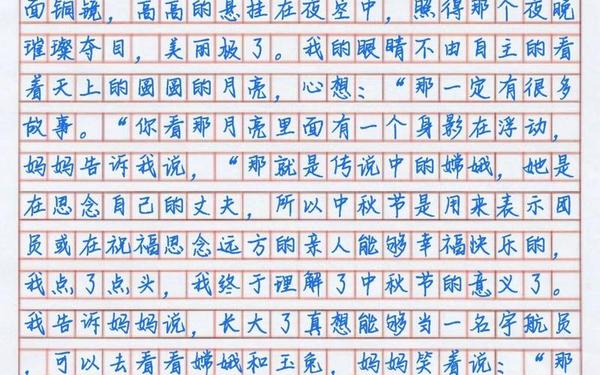 面铜镜，高高的悬挂在夜空中，照得那个夜晚
璀璨夺目，美丽极了。我的眼睛不由自主的看
着天上的圆圆的月亮，心想：“那一定有很多
故事。“你看那月亮里面有一个身影在浮动，
妈妈告诉我说，“那就是传说中的嫦娥，她是
在思念自己的丈夫，所以中秋节是用来表示团
员或在祝福思念远方的亲人能够幸福快乐的，
我点了点头，我终于理解了中秋节的意义了。
我告诉妈妈说，长大了真想能够当一名宇航员
，可以去看看嫦娥和玉兔，妈妈笑着说：“那